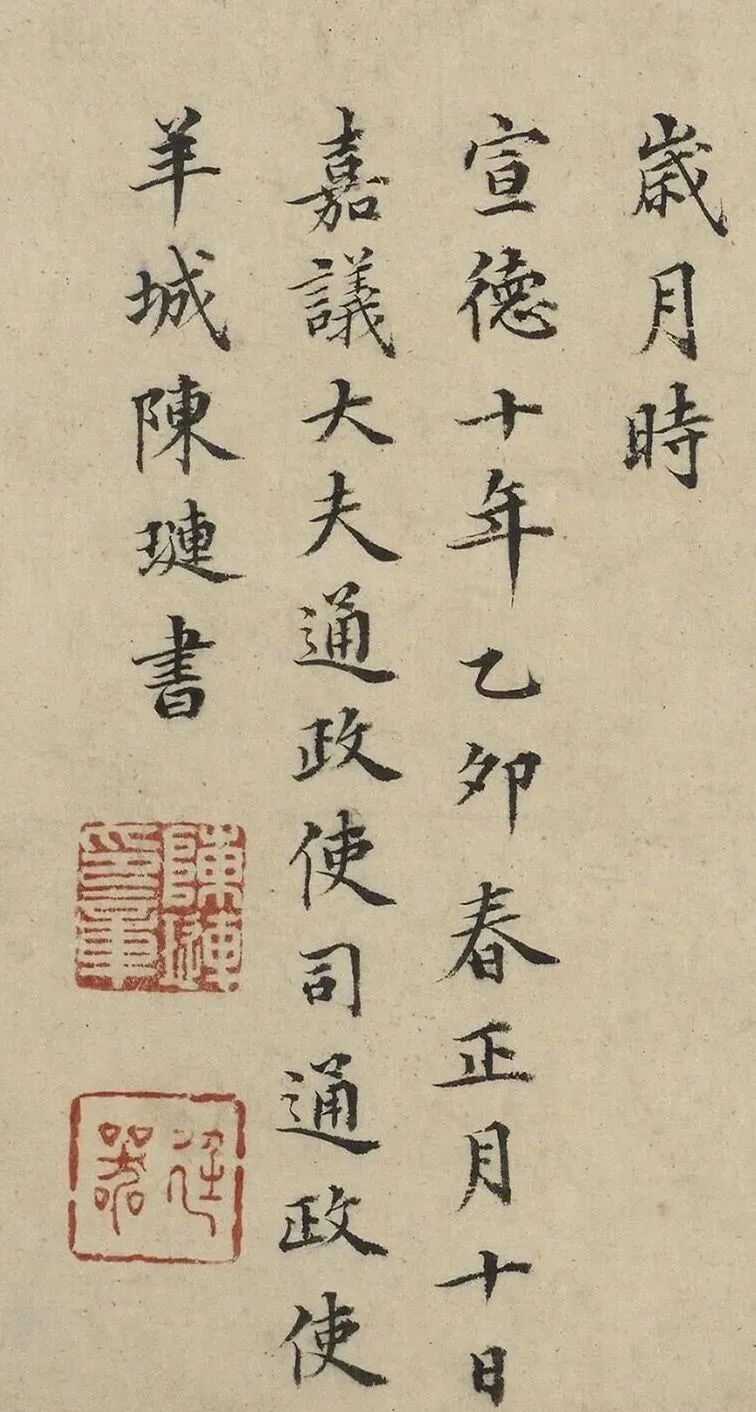 歲月時
宣德十年乙卯春正月十日
嘉議大夫通政使司通政使
羊城陳璉書
陳璉
章
廷器